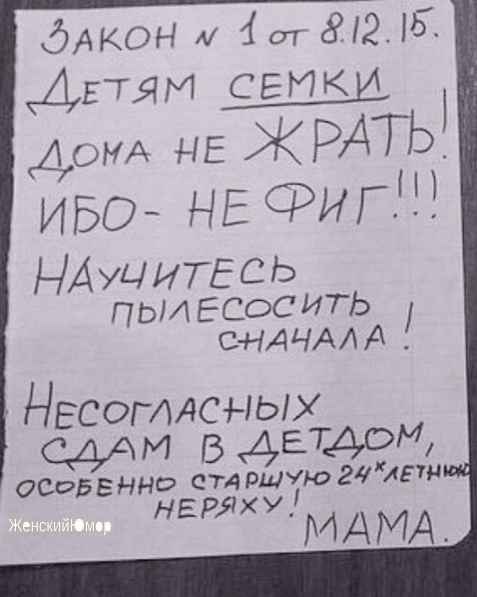 ЗАКОН N 1 от 8.12.15.
ДЕТЯМ СЕМКИ
ДОМА НЕ ЖРАТЬ!
ИБО - НЕ ФИГ!!!
НАУЧИТЕСЬ
ПЫЛЕСОСИТЬ
СНАЧАЛА!
НЕСОГЛАСНЫХ
СДАМ В ДЕТДОМ,
ОСОБЕННО СТАРШУЮ 24х ЛЕТНЮЮ
НЕРЯХУ!
ЖенскийЮмор
МАМА.